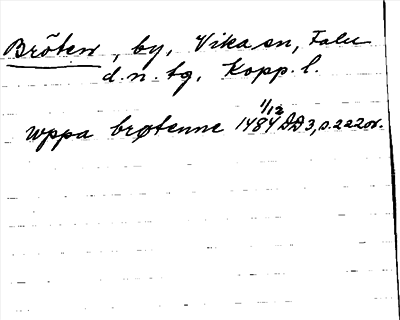 Bröten, by, Vika sn, Falu
d.n. tg, Kopp. l.
1/12
uppa brøtenne 1484 DD 3, s. 220r.